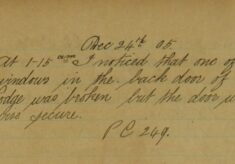 Dec 24th 05.
At 1-15 am I noticed that one of
windows in the back door of
odge was broken but the door w
secure.
P C 249.